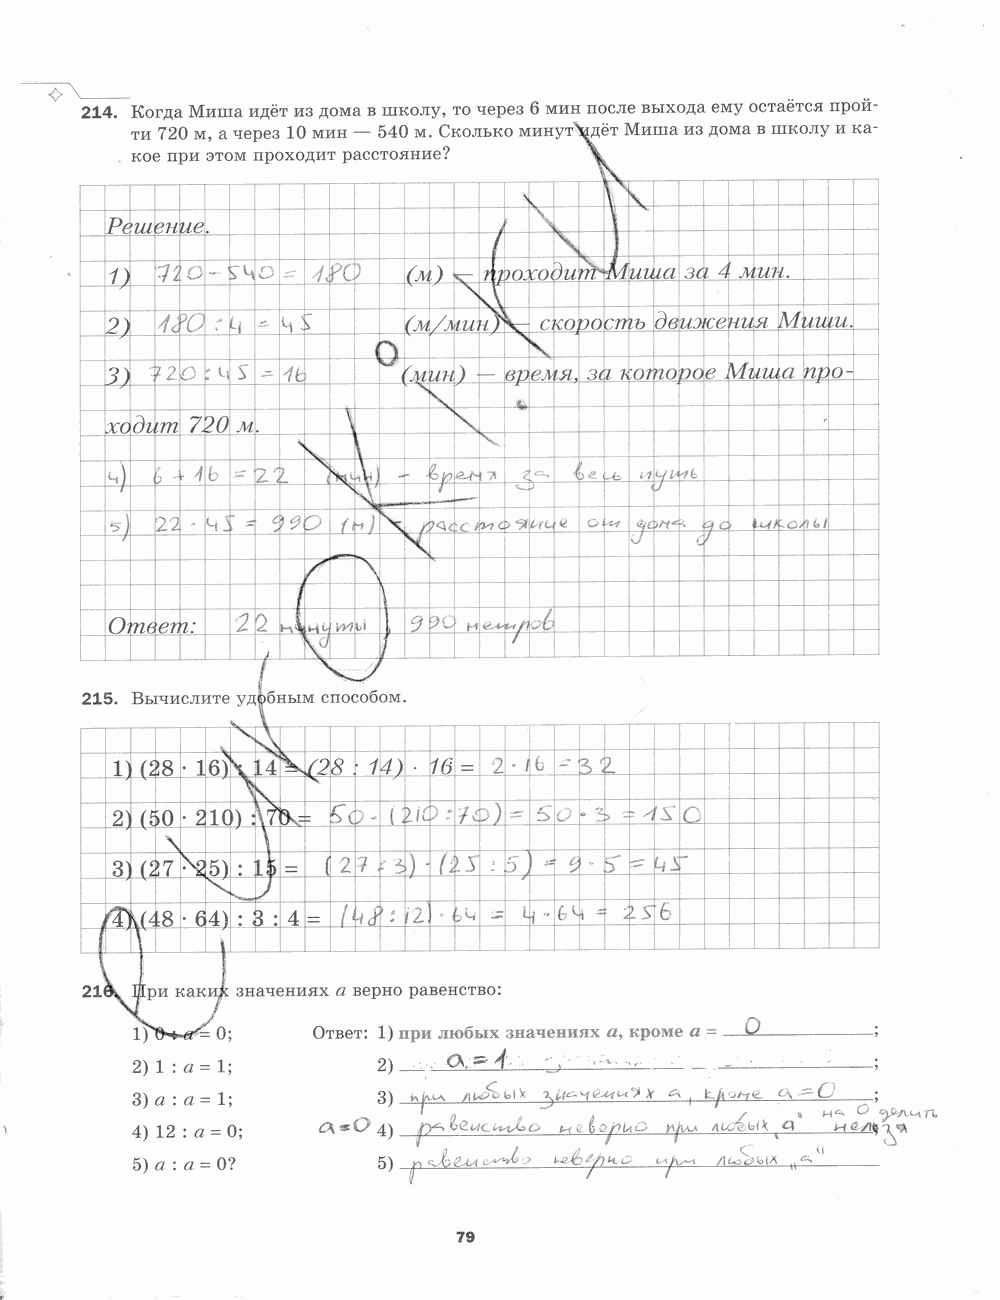 214. Когда Миша идёт из дома в школу, то через 6 мин после выхода ему остаётся прой-
ти 720 м, а через 10 мин — 540 м. Сколько минут идёт Миша из дома в школу и ка-
кое при этом проходит расстояние?
Решение.
1) 720 - 540 = 180 (м) — проходит Миша за 4 мин.
2) 180 : 4 = 45 (м/мин) — скорость движения Миши.
3) 720 : 45 = 16 (мин) — время, за которое Миша про-
ходит 720 м.
4) 6 + 16 = 22 (мин) - время за весь путь
5) 22 · 45 = 990 (м) - расстояние от дома до школы
Ответ: 22 минуты, 990 метров
215. Вычислите удобным способом.
1) (28 · 16) : 14 = (28 : 14) · 16 = 2 · 16 = 32
2) (50 · 210) : 70 = 50 · (210 : 70) = 50 · 3 = 150
3) (27 · 25) : 15 = (27 : 3) · (25 : 5) = 9 · 5 = 45
4) (48 · 64) : 3 : 4 = (48 : 12) · 64 = 4 · 64 = 256
216. При каких значениях a верно равенство:
1) 0 : a = 0; Ответ: 1) при любых значениях a, кроме a = 0;
2) 1 : a = 1; 2) a = 1;
3) a : a = 1; 3) при любых значениях a, кроме a = 0;
4) 12 : a = 0; a=0 4) равенство неверно при любых „a" на 0 делить нельзя
5) a : a = 0? 5) равенство неверно при любых „a"
79